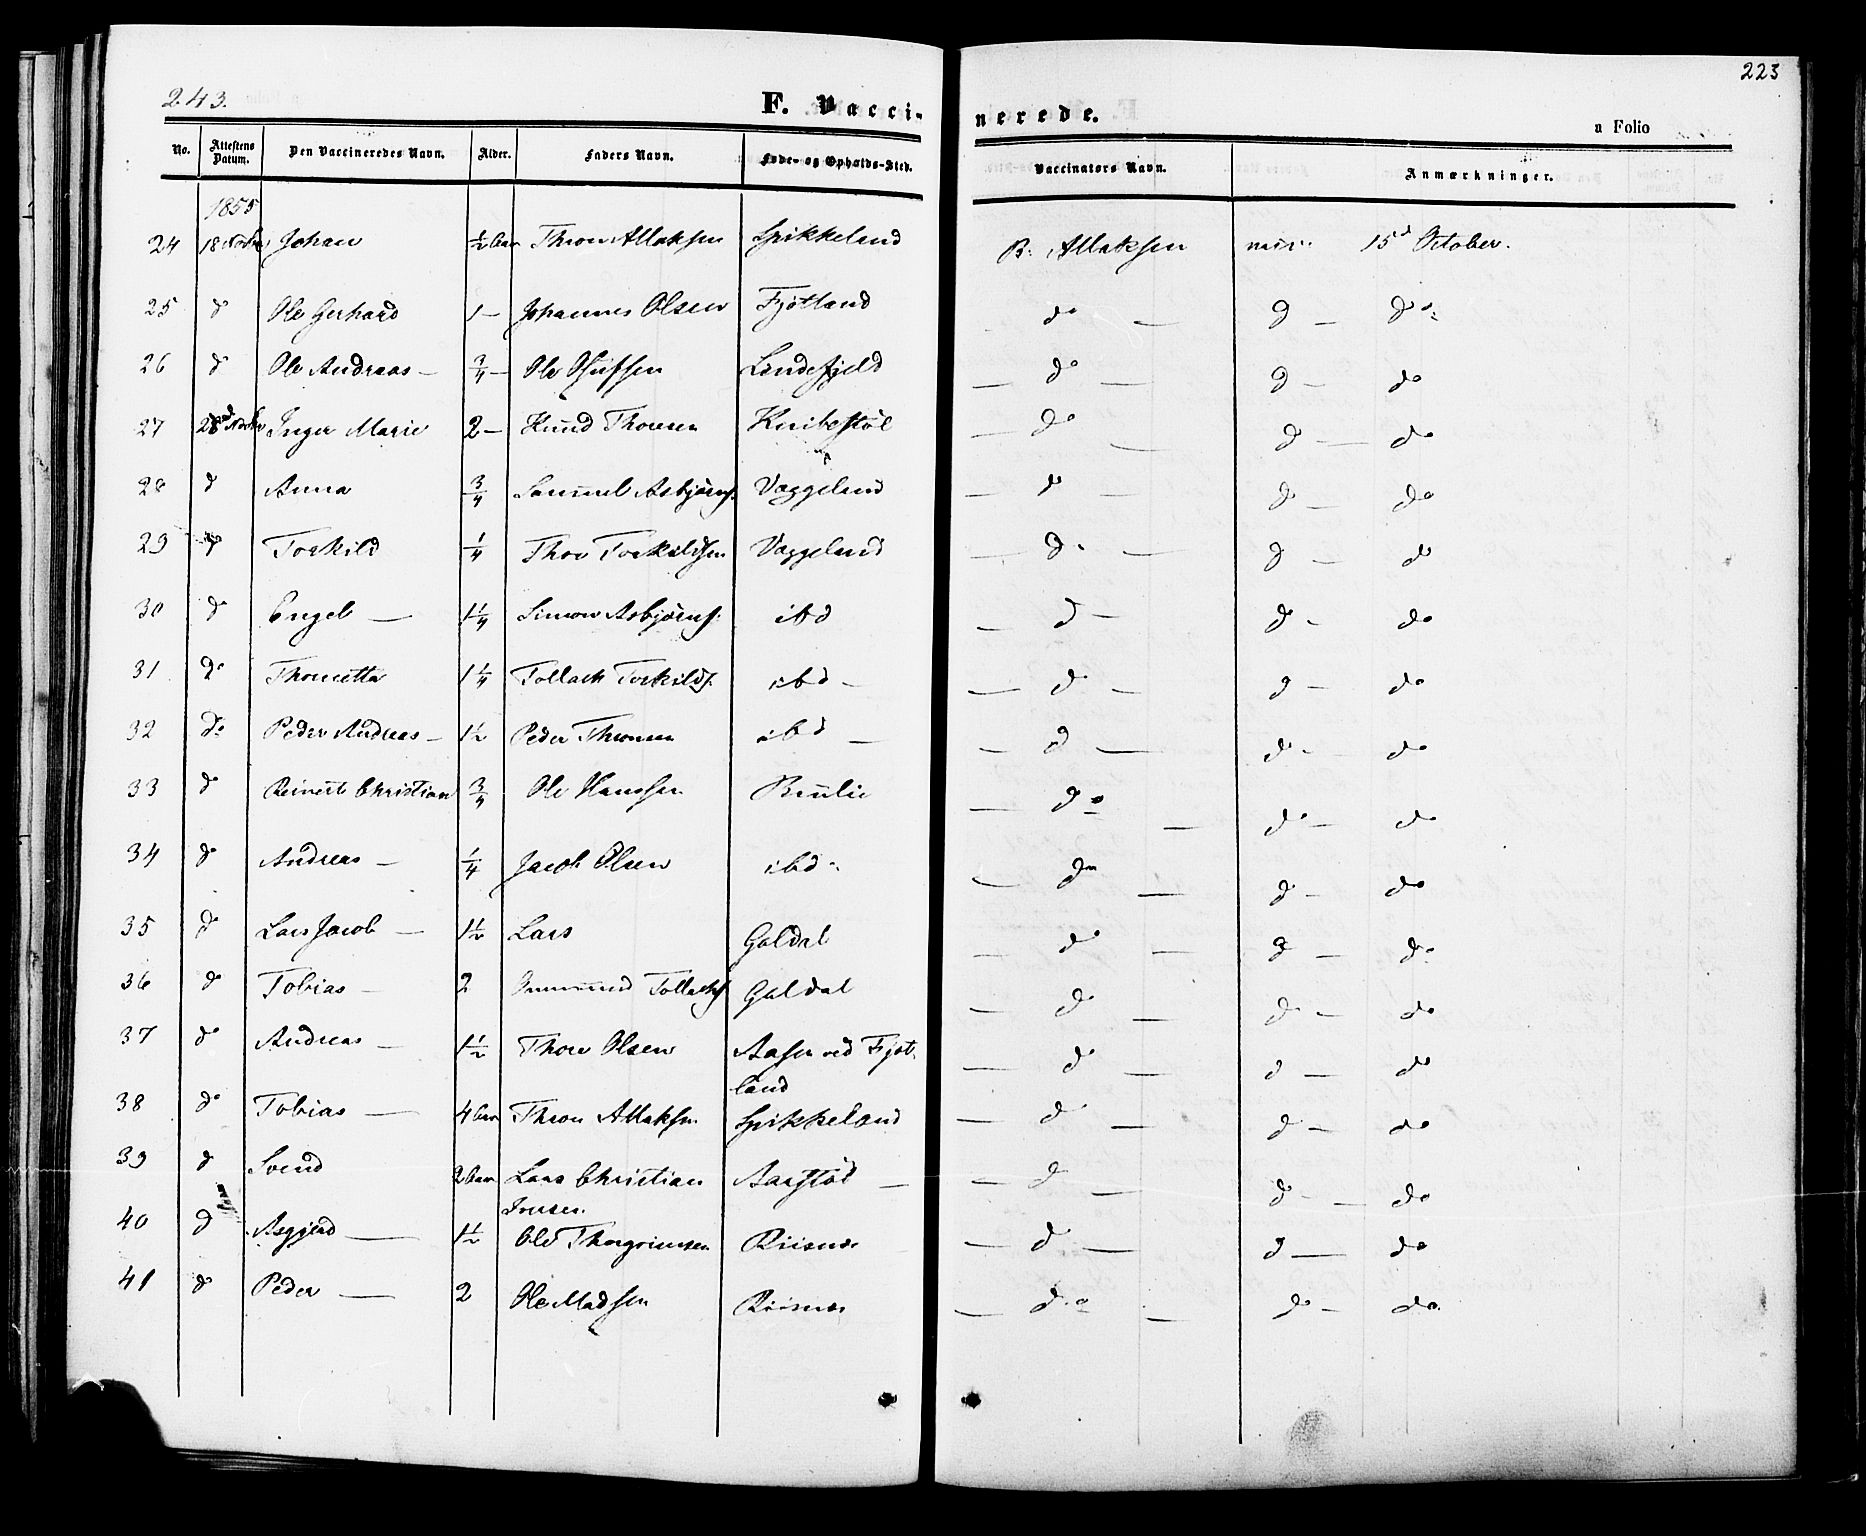 243.
223
F. Vaccinerede.
a Folio
No. Attestens Datum. Den Vaccineredes Navn. Alder. Faders Navn. Føde- og Opholds-Sted. Vaccinators Navn. Anmærkninger.
1855
24 18 Johan 1/2 Thron Atlaksen Spikkeland B: Atlaksen 15d October.
25 do Ole Gerhard 1 — Johannes Olsen Fjotland do — d — do
26 do Ole Andreas — 3/4 — Ole Lindefjeld — do — d — do
27 28d Inger Marie 2 — Knud Thomsen — do — d — do
28 d Anna 3/4 Samuel Asbjørns. Væggeland — do — do do
29 do Torkild 1/4 Thor Torkildsen Væggeland — do — d — do
30 do Engel — 1 1/4 Simon Asbjørns. ibd — d — do - do
31 do 1 1/4 Tollack Torkilds. ibd — — d — d — do
32 do Peder Andreas — 1 1/2 Peder Thronsen ibd — — d — do - do
33 do Reinert Christian 3/4 Ole Hanssen — do — do — do
34 do Andreas — 1/4 Jacob Olsen ibd — do — do — do
35 do Lars Jacob — 1 1/2 Lars Galdal — do — d — do
36 do Tobias — 2 Tollacks Galdal — do — do — do
37 do Andreas — 1 1/2 Thore Olsen Aasen ved Fjot-
land — do — d — do
38 do Tobias — 4 Thron Atlaksen Spikkeland — do — d — do
39 d Svend 2 Lars Christian — — d — do — do
40 d Asgjerd — 1 1/2 Ole Thorgrimsen Risnes — do — d — do
41 do Peder — 2 Ole Madsen Risnes — do — do — do.